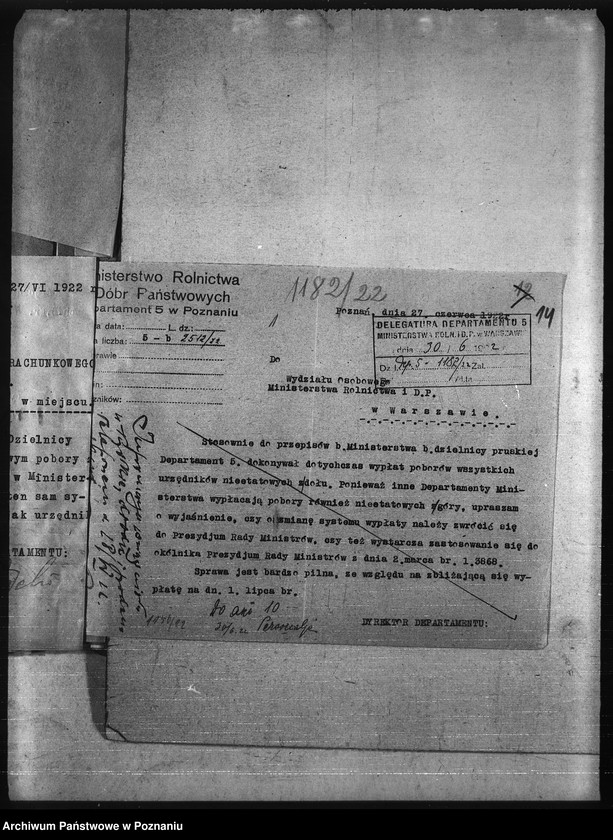 27/VI 1922 r
RACHUNKOWEGO
w miejscu.
Dzielnicy
wym pobory
w Minister-
ten sam sy-
ak urzędni
TAMENTU:
nisterstwo Rolnictwa
Dóbr Państwowych
partament 5 w Poznaniu
a data: L. dz:
a liczba: 5 - b 2512/22
rawie
n:
zników:
1182/22
12
14
Poznań, dnia 27. czerwca 1922r
DELEGATURA DEPARTAMENTU 5
MINISTERSTWA ROLN. I D. P. w WARSZAWIE
dnia 30 / 6 1922.
Dz. Dep. 5 - 1182/22 Zał.
Do
Wydziału Osobowego
Ministerstwa Rolnictwa i D.P.
w Warszawie.
Stosownie do przepisów b.Ministerstwa b.dzielnicy pruskiej
Departament 5. dokonywał dotychczas wypłat poborów wszystkich
urzędników nieetatowych zdołu. Ponieważ inne Departamenty Mini-
sterstwa wypłacają pobory również nieetatowych zgóry, upraszam
o wyjaśnienie, czy o zmianę systemu wypłaty należy zwrócić się
do Prezydjum Rady Ministrów, czy też wystarcza zastosowanie się do
okólnika Prezydjum Rady Ministrów z dnia 2.marca br. l.3868.
Sprawa jest bardzo pilna, ze względu na zbliżającą się wy-
płatę na dn. 1. lipca br.
Do akt 10
DYREKTOR DEPARTAMENTU:
Archiwum Państwowe w Poznaniu